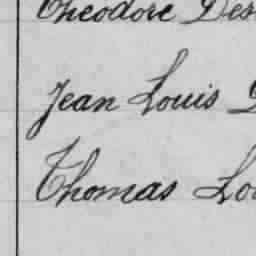 Theodore Des
Jean Louis
Thomas Lou